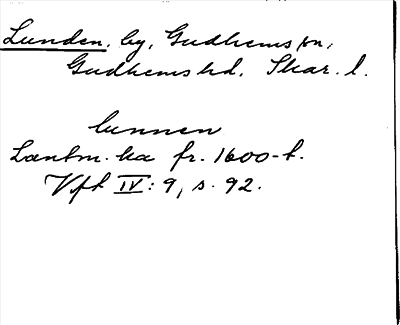 Lunden, by, Gudhems sn,
Gudhems hd, Skar. l.
lunnen
Lantm. ka fr. 1600-t.
Vft IV: 9, s. 92.